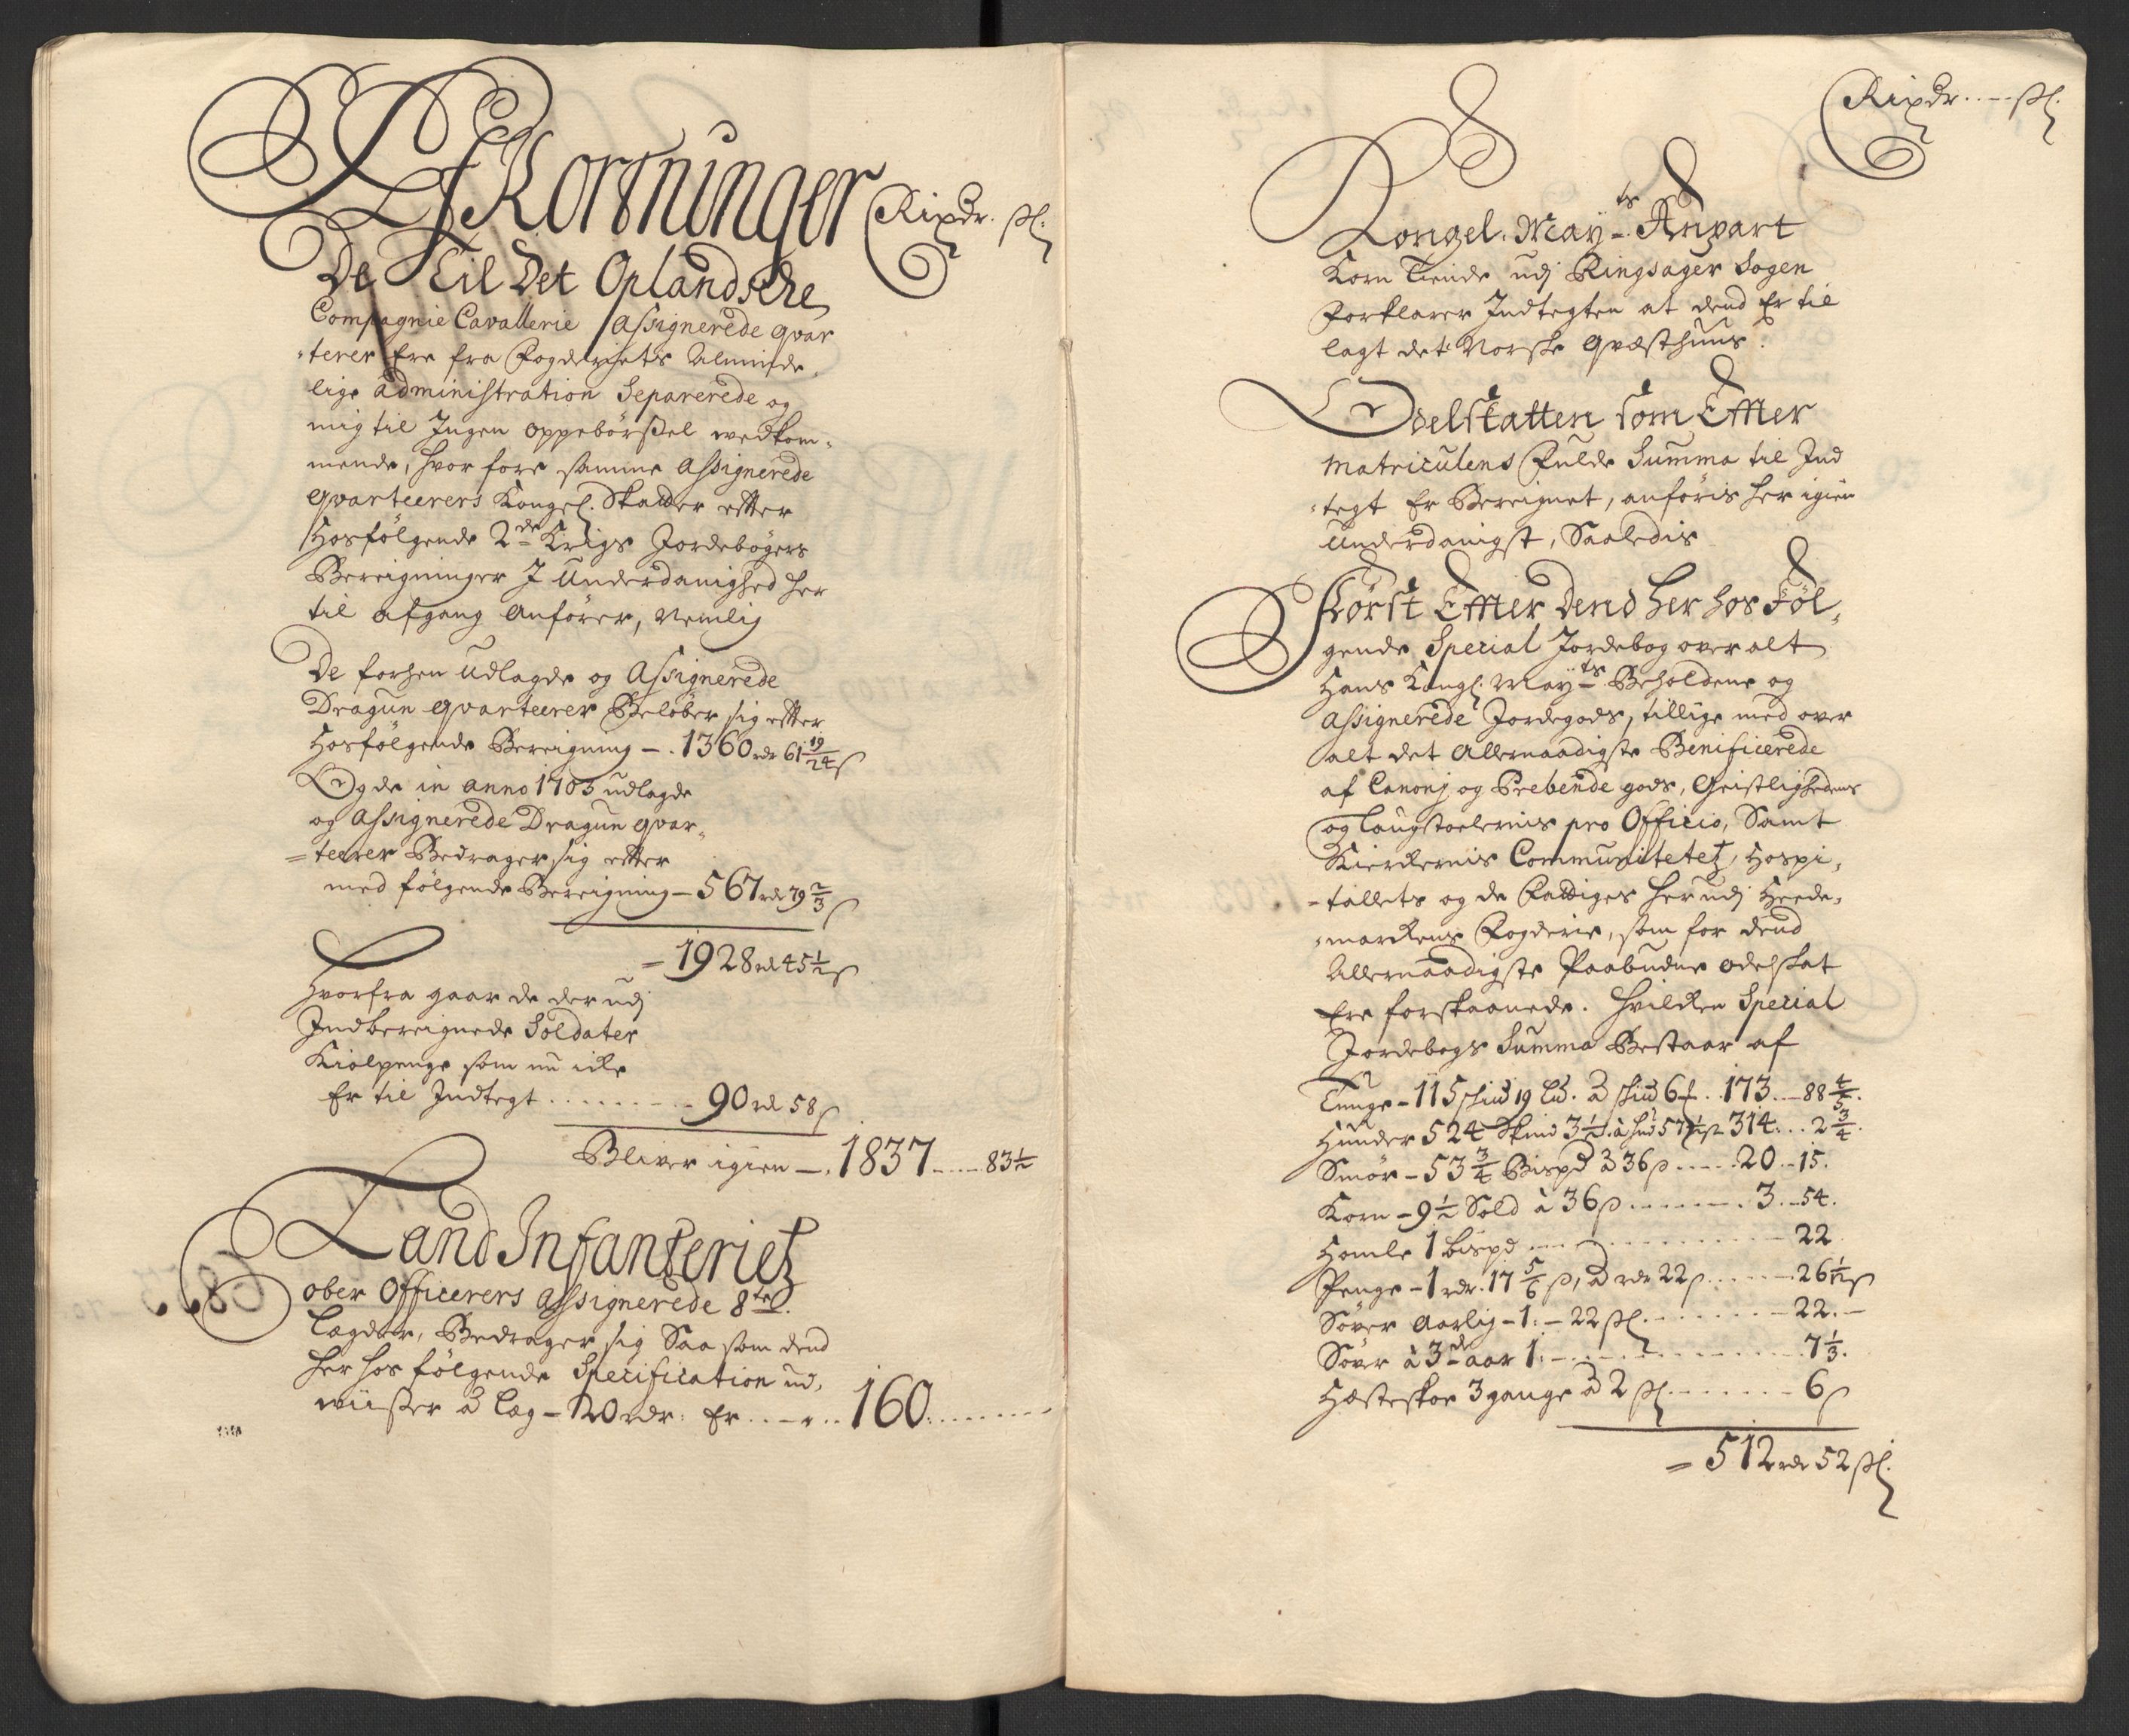 Afkortninger
Rixdr. ßl.
De Til Det Oplandsche
Compagnie Cavallerie Assignerede qvar
-terer Ere fra Fogderiets Alminde,
lige administration Separerede og
mig til Ingen oppebörßel wedkom-
mende, hvor fore samme Assignerede
qvarteerers Kongel. Skatter efter
Hosfölgende 2de Krigs Jordebögers
Bereigninger I Underdanighed her
til afgang Anförer, Nemlig
De forhen Udlagde og Assignerede
Dragun qvarteerer Belöber sig efter
Hosfölgende Bereigning - . 1360 rdr 61 19/24 ß
Og de in anno 1703 udlagde
og Assignerede Dragun qvar-
=teerer Bedrager sig efter
med fölgende Bereigning - 567 rdr 79 2/3 ß
= 1928 rd 45 1/2 ß
Hvorfra gaar de der udj
Indbereignede Soldater
Kiolpenge som nu icke
Er til Indtegt ......... 90 rd 58 ß
Bliver igien - . 1837 .... 83 1/2
Land Infanteriet
ober Officerers Assignerede 8te
Lægder, Bedrager sig Saa som dend
her hos fölgende Specification ud,
wiißer à Læg - 20 rdr: Er ..... 160 .......
Rixdr. .... ßl.
Kongel. Mayts Anpart
Korn Tiende udj Ringsager Sogen
Forklarer Indtegten at dend Er til
lagt det Norske Qvæsthuus.
Odelskatten som Effter
Matriculens Fulde Summa til Ind
-tegt Er Bereignet, anföris her igien
Underdanigst, Saaledis
Först Effter Dend her hos Föl-
gende Special Jordebog over alt
Hans Kongl. Mayts Beholdene og
Assignerede Jordegods, tillige med over
alt det Allernaadigste Benificerede
af Canonj og Prebende gods, Geistlighedens
og Laugstoelernis pro Officio, Samt
Kierkernis Communitetet, Hospi-
-tallets og de Fattiges her udj Heede-
-markens Fogderie, som for dend
Allernaadigste Paabudne odelskat
Ere forskaanede. Hvilken Special
Jordebogs Summa Bestaar af
Tunge - 115 skind 19 Lid. à skind 6 ß .. 173 .. - 88 4/5.
Hunder 524 Skind 3 1/2. à hud 57 1/2 ß 314 ... 2 3/4.
Smör - 53 3/4 Bispd à 36 ß ..... 20 .. 15.
Korn - 9 1/2 Sold à 36 ß ........ 3 .. 54.
Homle 1 bispd ............... 22
Penge - 1 rdr. 17 5/6 ß, à rdr 22 ß ...... 26 1/12 ß
Söver Aarlig - 1: - 22 ßl. ....... 22. -
Söver à 3de aar 1: - .......... 7 1/3.
Hæsteskoe 3 gange à 2 ßl. ...... 6 ß
= 512 rdr 52 ßl.